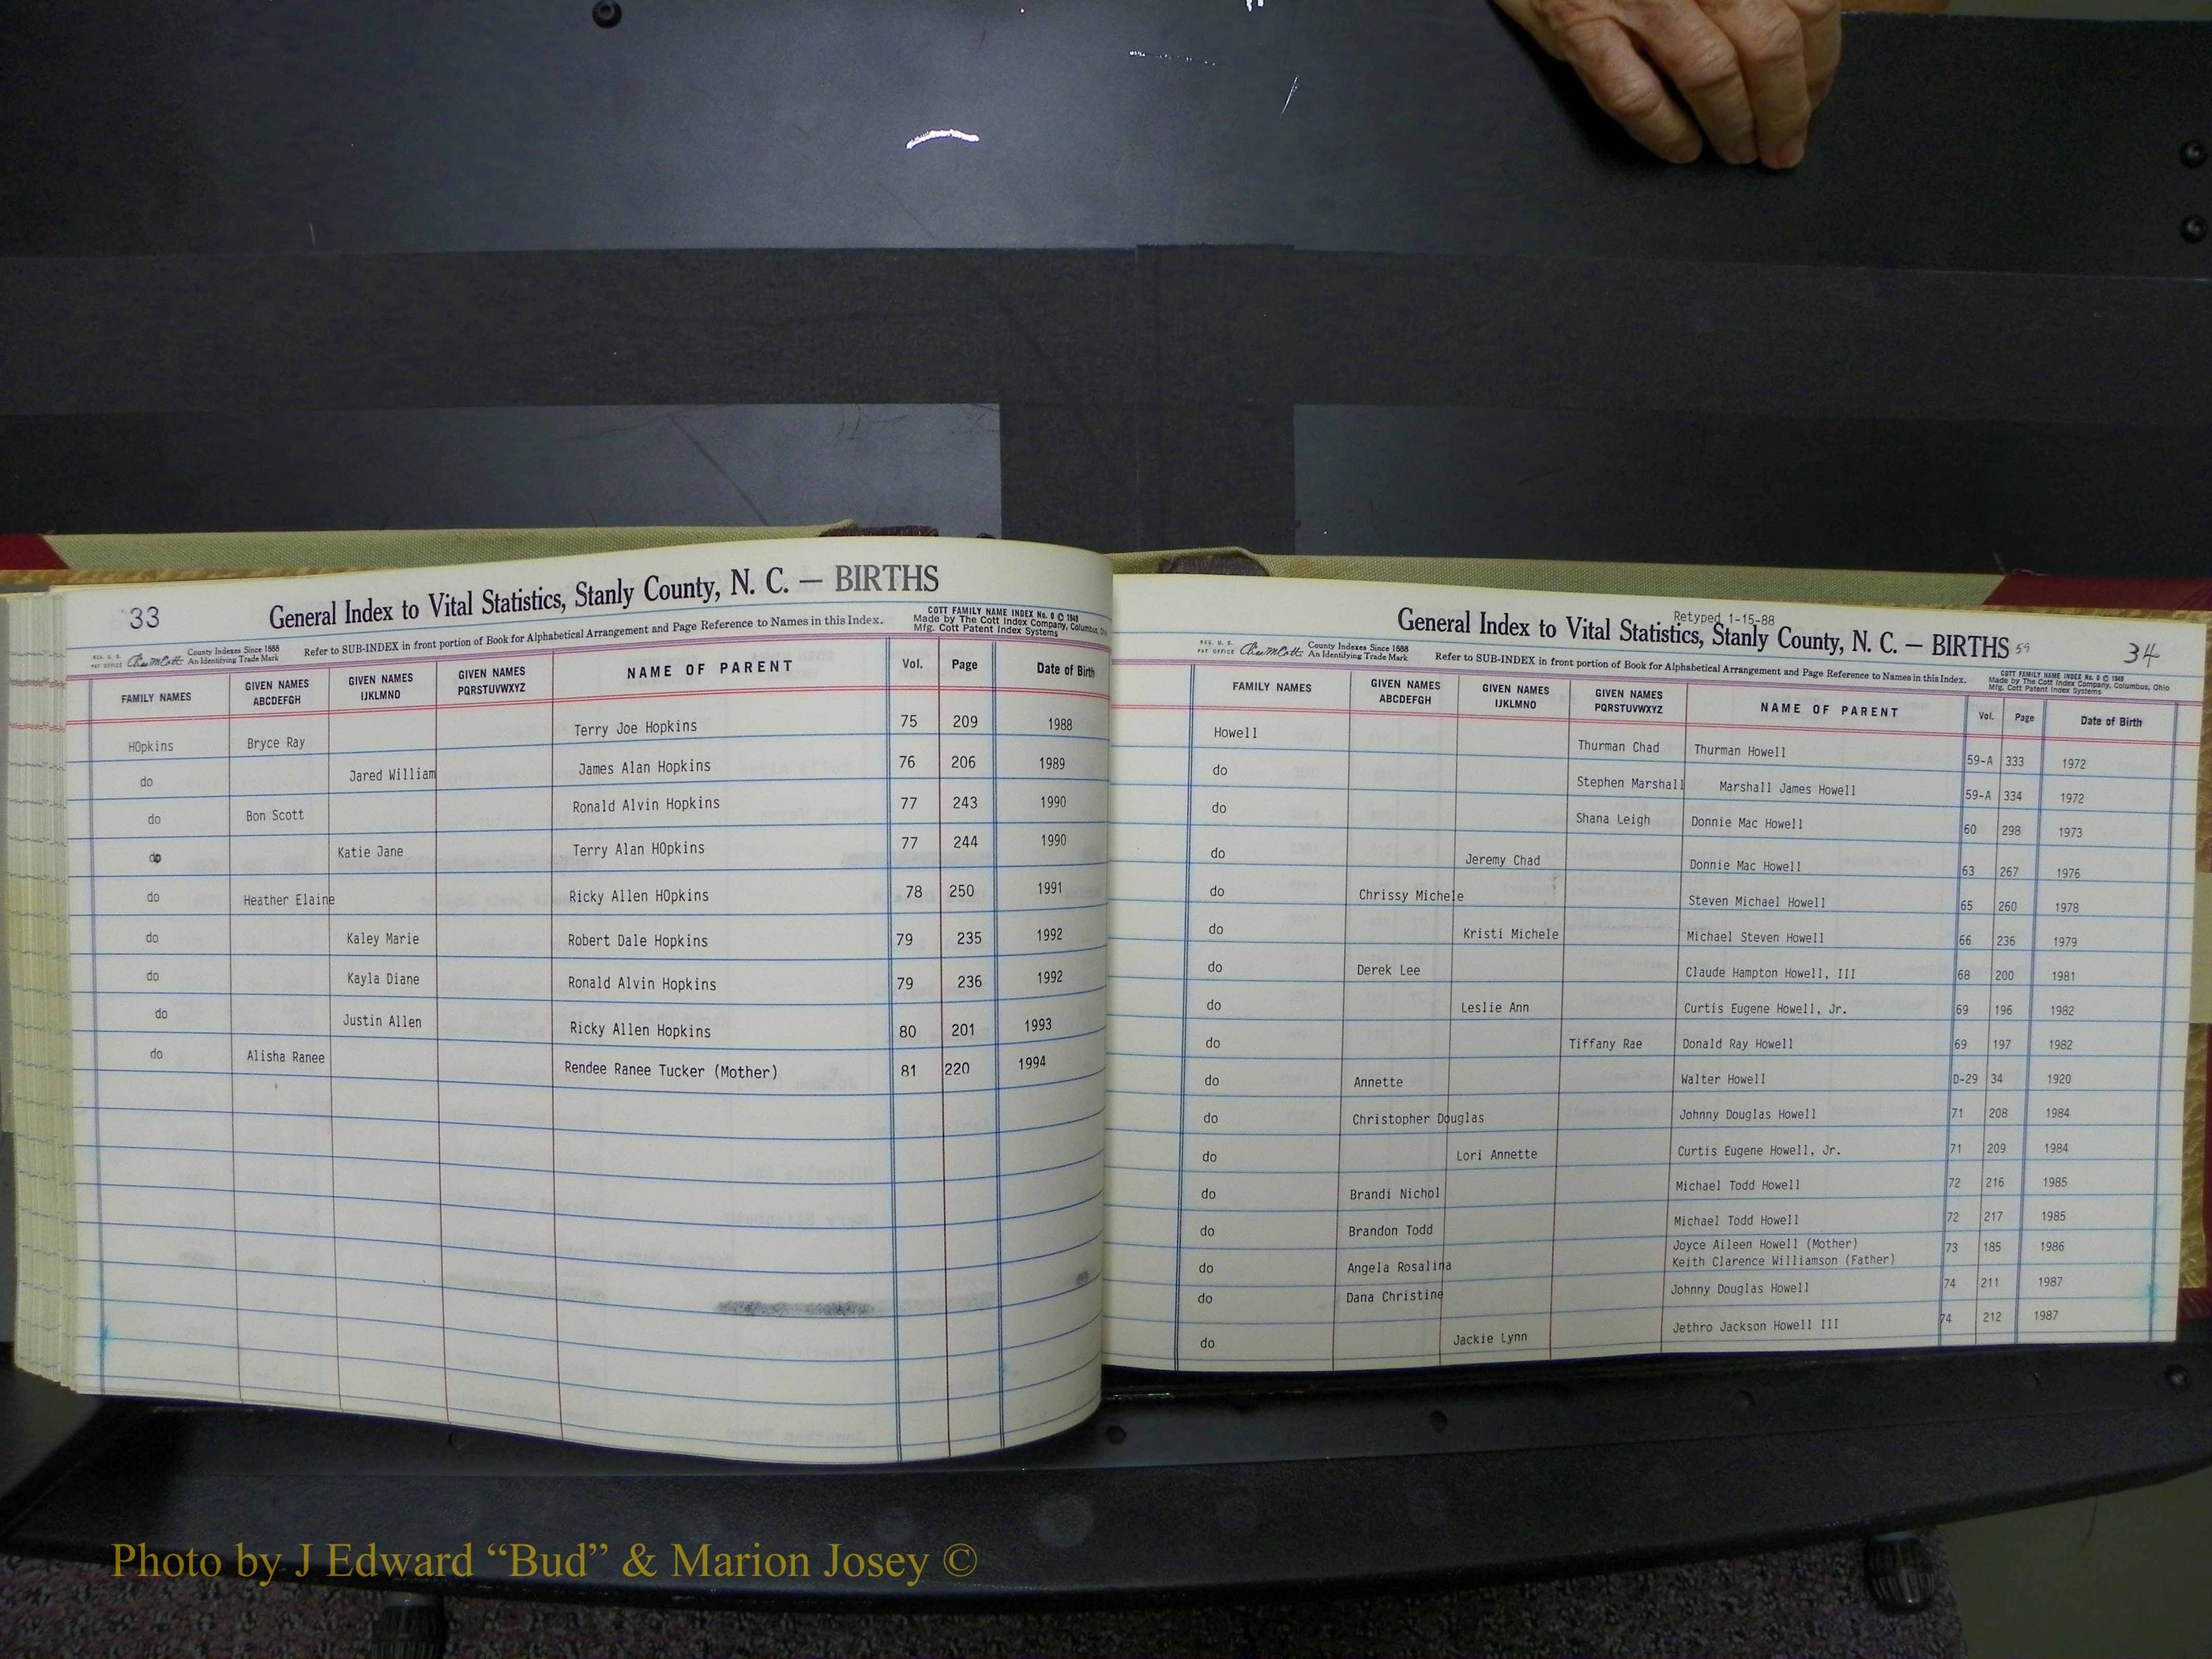 33
General Index to Vital Statistics, Stanly County, N. C. — BIRTHS
COTT FAMILY NAME INDEX No. 0 © 1949
Made by The Cott Index Company, Columbus, Ohio
Mfg. Cott Patent Index Systems
REG. U. S. PAT OFFICE County Indexes Since 1888 An Identifying Trade Mark
Refer to SUB-INDEX in front portion of Book for Alphabetical Arrangement and Page Reference to Names in this Index.
FAMILY NAMES GIVEN NAMES ABCDEFGH GIVEN NAMES IJKLMNO GIVEN NAMES PQRSTUVWXYZ NAME OF PARENT Vol. Page Date of Birth
HOpkins Bryce Ray Terry Joe Hopkins 75 209 1988
do Jared William James Alan Hopkins 76 206 1989
do Bon Scott Ronald Alvin Hopkins 77 243 1990
do Katie Jane Terry Alan HOpkins 77 244 1990
do Heather Elaine Ricky Allen HOpkins 78 250 1991
do Kaley Marie Robert Dale Hopkins 79 235 1992
do Kayla Diane Ronald Alvin Hopkins 79 236 1992
do Justin Allen Ricky Allen Hopkins 80 201 1993
do Alisha Ranee Rendee Ranee Tucker (Mother) 81 220 1994
Retyped 1-15-88
General Index to Vital Statistics, Stanly County, N. C. — BIRTHS 59
34
COTT FAMILY NAME INDEX No. 0 © 1949
Made by The Cott Index Company, Columbus, Ohio
Mfg. Cott Patent Index Systems
REG. U. S. PAT OFFICE County Indexes Since 1888 An Identifying Trade Mark
Refer to SUB-INDEX in front portion of Book for Alphabetical Arrangement and Page Reference to Names in this Index.
FAMILY NAMES GIVEN NAMES ABCDEFGH GIVEN NAMES IJKLMNO GIVEN NAMES PQRSTUVWXYZ NAME OF PARENT Vol. Page Date of Birth
Howell Thurman Chad Thurman Howell 59-A 333 1972
do Stephen Marshall Marshall James Howell 59-A 334 1972
do Shana Leigh Donnie Mac Howell 60 298 1973
do Jeremy Chad Donnie Mac Howell 63 267 1976
do Chrissy Michele Steven Michael Howell 65 260 1978
do Kristi Michele Michael Steven Howell 66 236 1979
do Derek Lee Claude Hampton Howell, III 68 200 1981
do Leslie Ann Curtis Eugene Howell, Jr. 69 196 1982
do Tiffany Rae Donald Ray Howell 69 197 1982
do Annette Walter Howell D-29 34 1920
do Christopher Douglas Johnny Douglas Howell 71 208 1984
do Lori Annette Curtis Eugene Howell, Jr. 71 209 1984
do Brandi Nichol Michael Todd Howell 72 216 1985
do Brandon Todd Michael Todd Howell 72 217 1985
do Angela Rosalina Joyce Aileen Howell (Mother) 73 185 1986
Keith Clarence Williamson (Father)
do Dana Christine Johnny Douglas Howell 74 211 1987
do Jackie Lynn Jethro Jackson Howell III 74 212 1987
Photo by J Edward “Bud” & Marion Josey ©